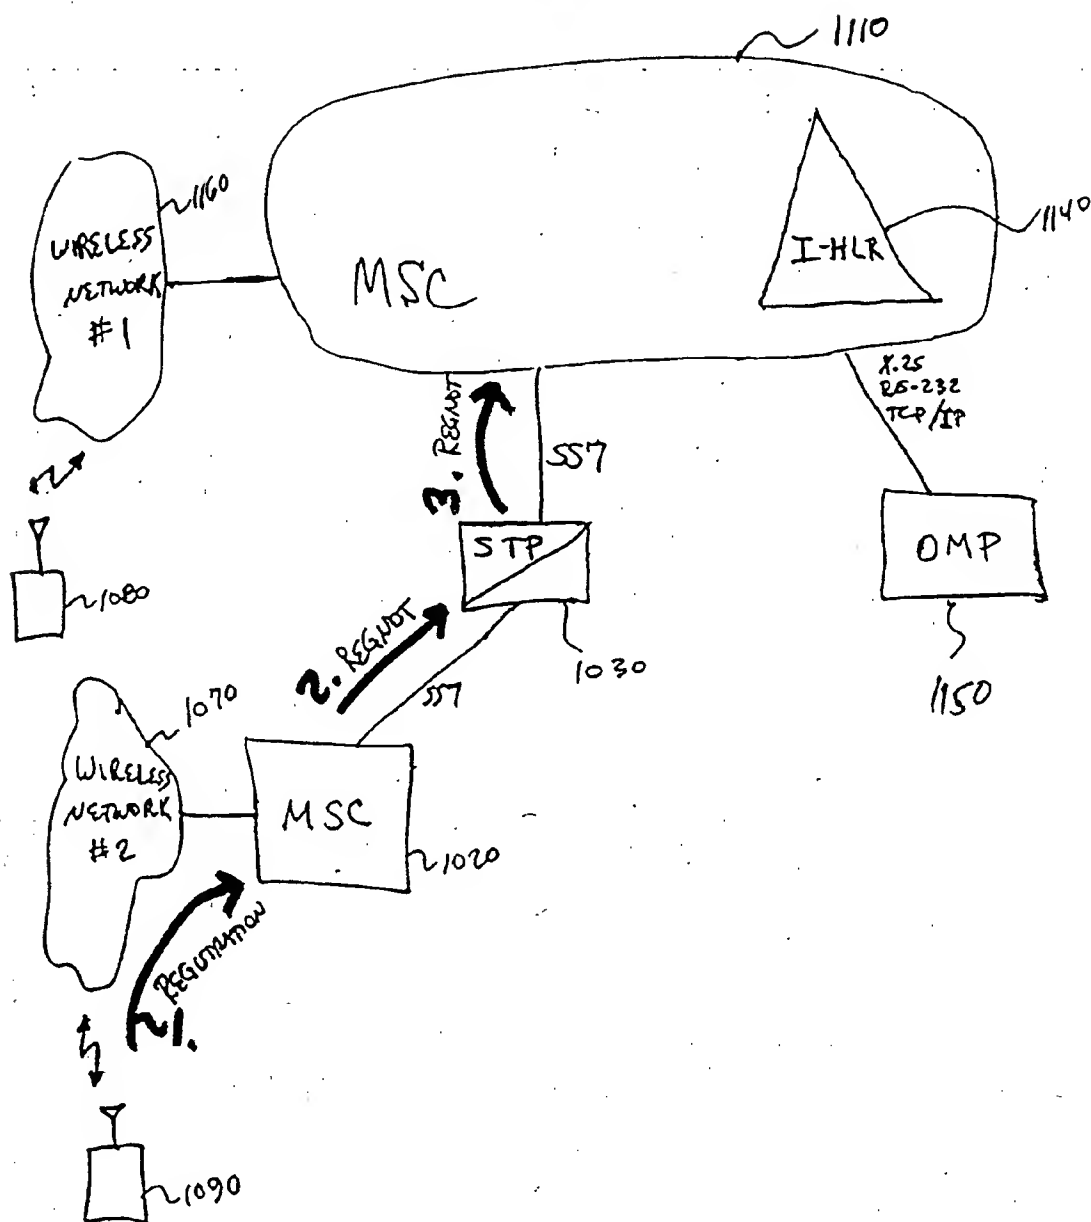 1110
1160
WIRELESS
NETWORK
#1
MSC
I-HLR
1140
X.25
RS-232
TCP/IP
3. REGNOT
SS7
STP
OMP
1080
2. REGNOT
SS7
1030
1150
1070
WIRELESS
NETWORK
#2
MSC
1020
1. REGISTRATION
1090